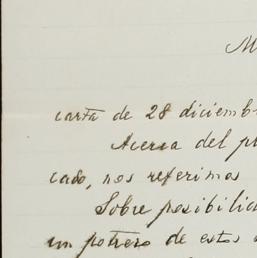 M
carta de 28 diciembr
Acerca del p
cado, nos referimos
Sobre posibilid
un potrero de estos